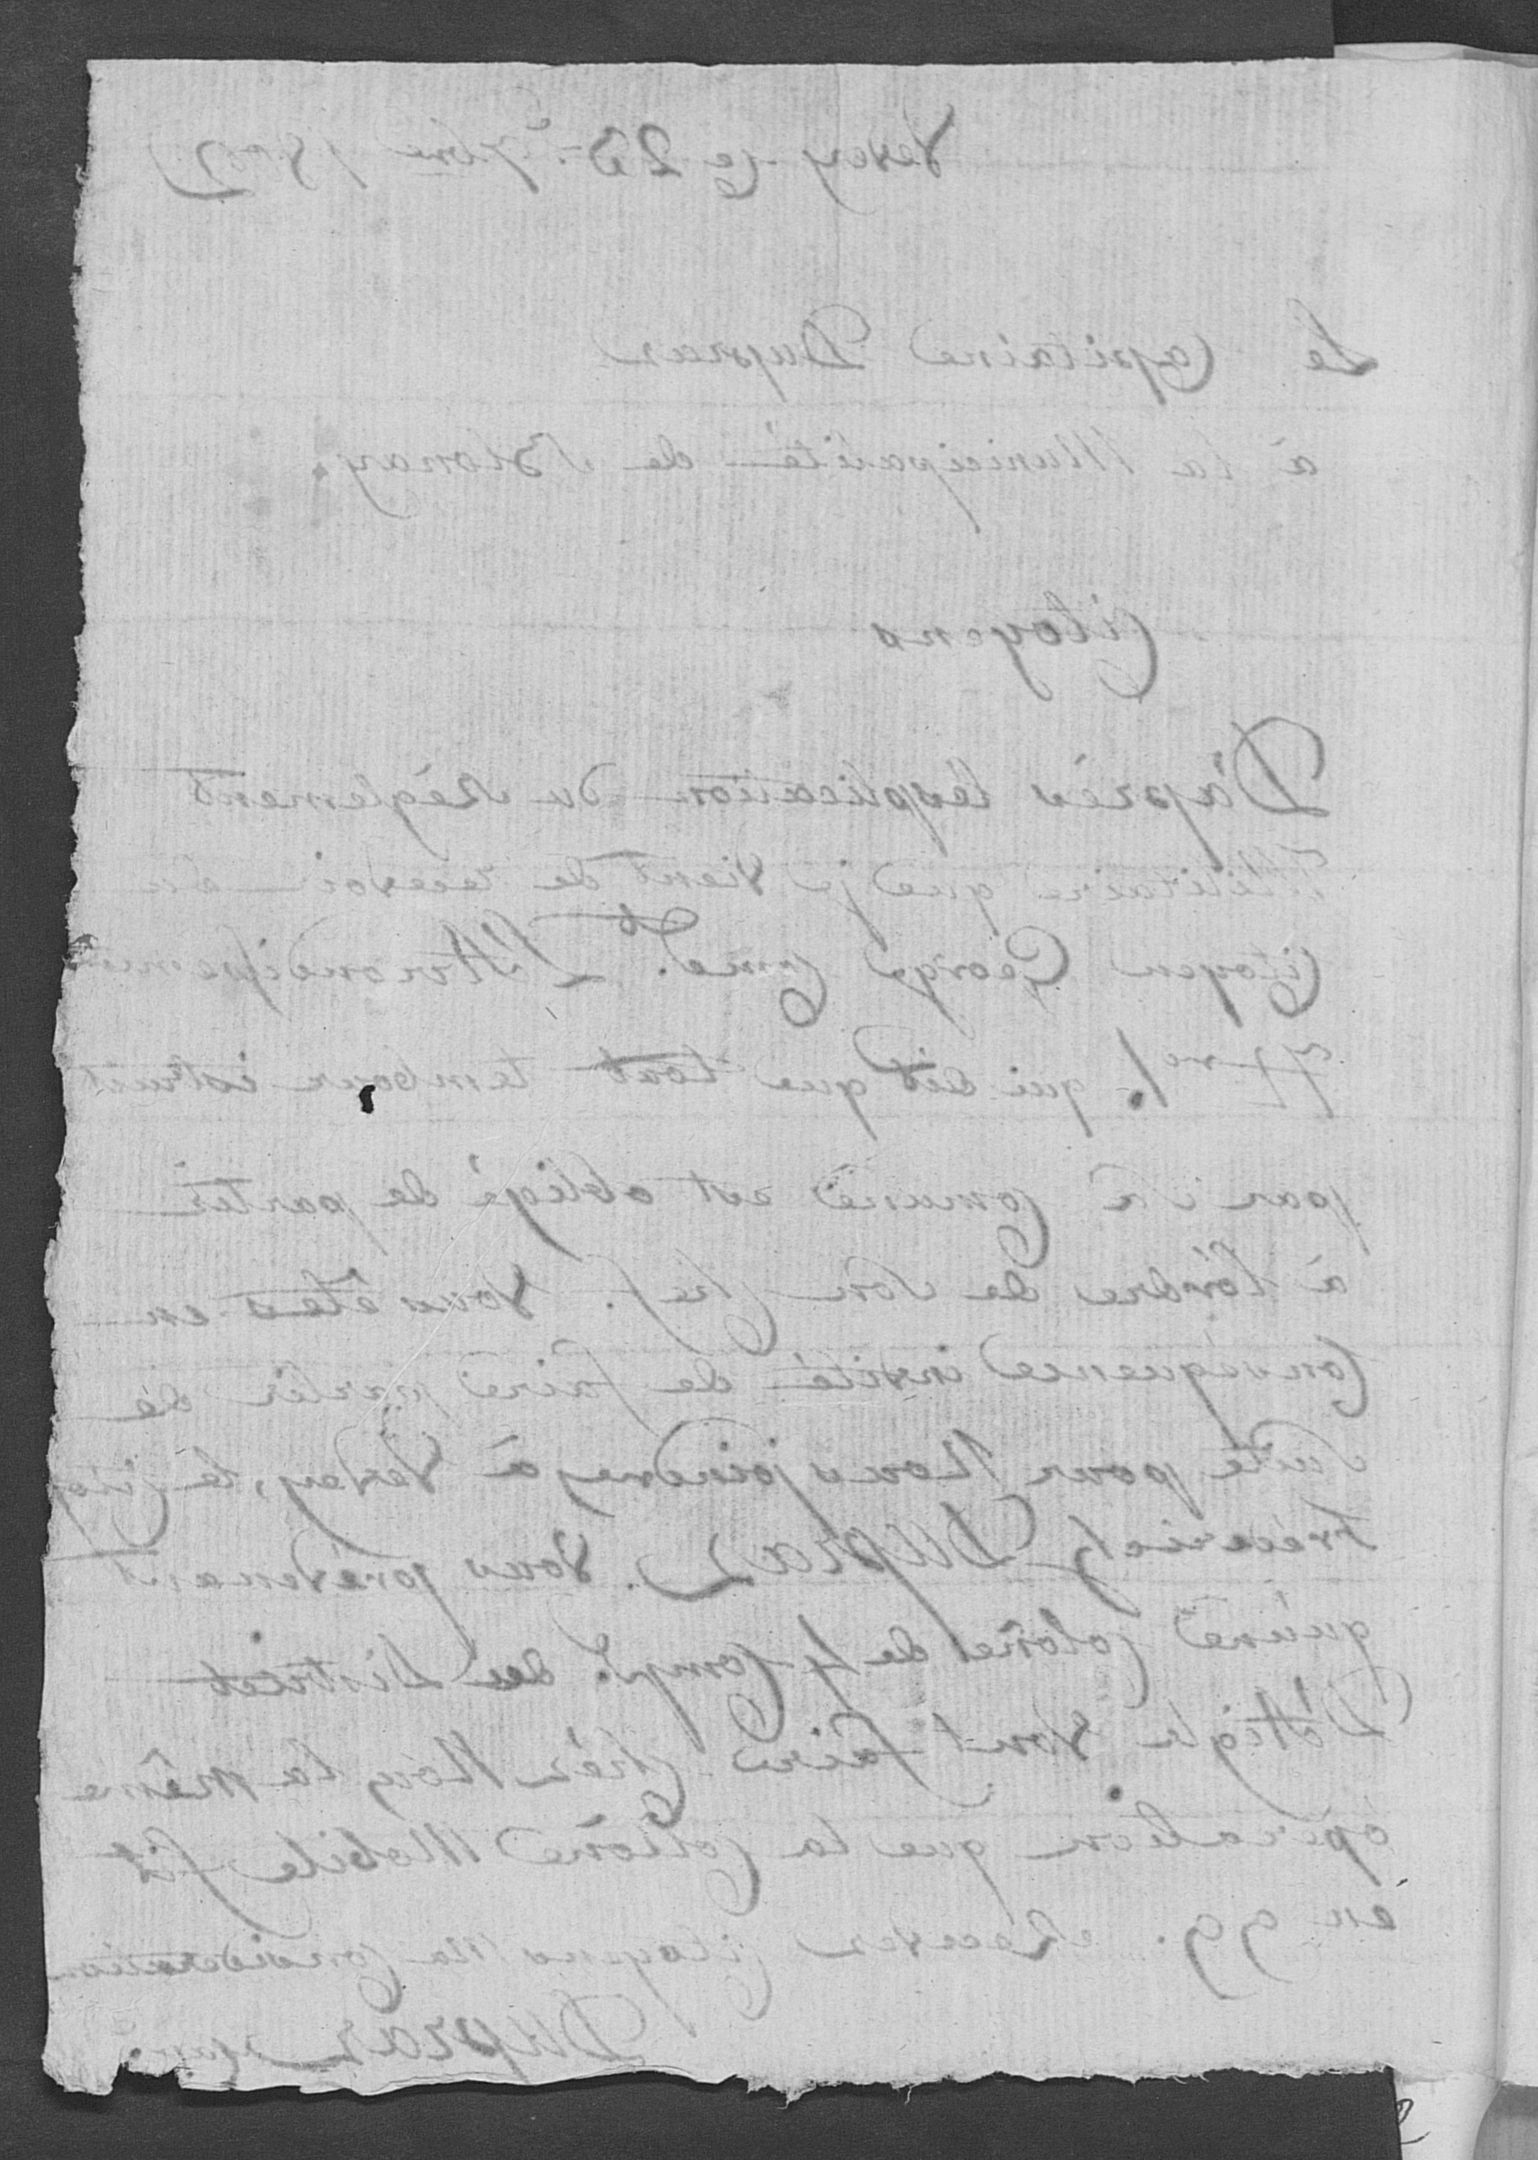 Vevey Ce 23 7bre 1802
Le Capitaine Dupraz
à la Municipalité de Blonay.
Citoyens
D'après l'esplication du Réglement
Militaire que je Vient de recevoi du
Citoyen George Comdt. L'Arrondissement
qui dit que tout tembour istruit
par Sa Comune est obligé de partir
à l'ordre de son Chef. Vous êtes en
Conséquence invité de faire partir de
Suite pour Nous joindre à Vevey, le Citoy
Frederich DUpraz. Vous prévenant
qu'une Colone de 4 Comp. du District
D'Aigle Vont faire Chéz Nous la même
opération que la Colone Mobile fit
en 99. Recever Citoyens Ma Consideration
DUpraz Cap.